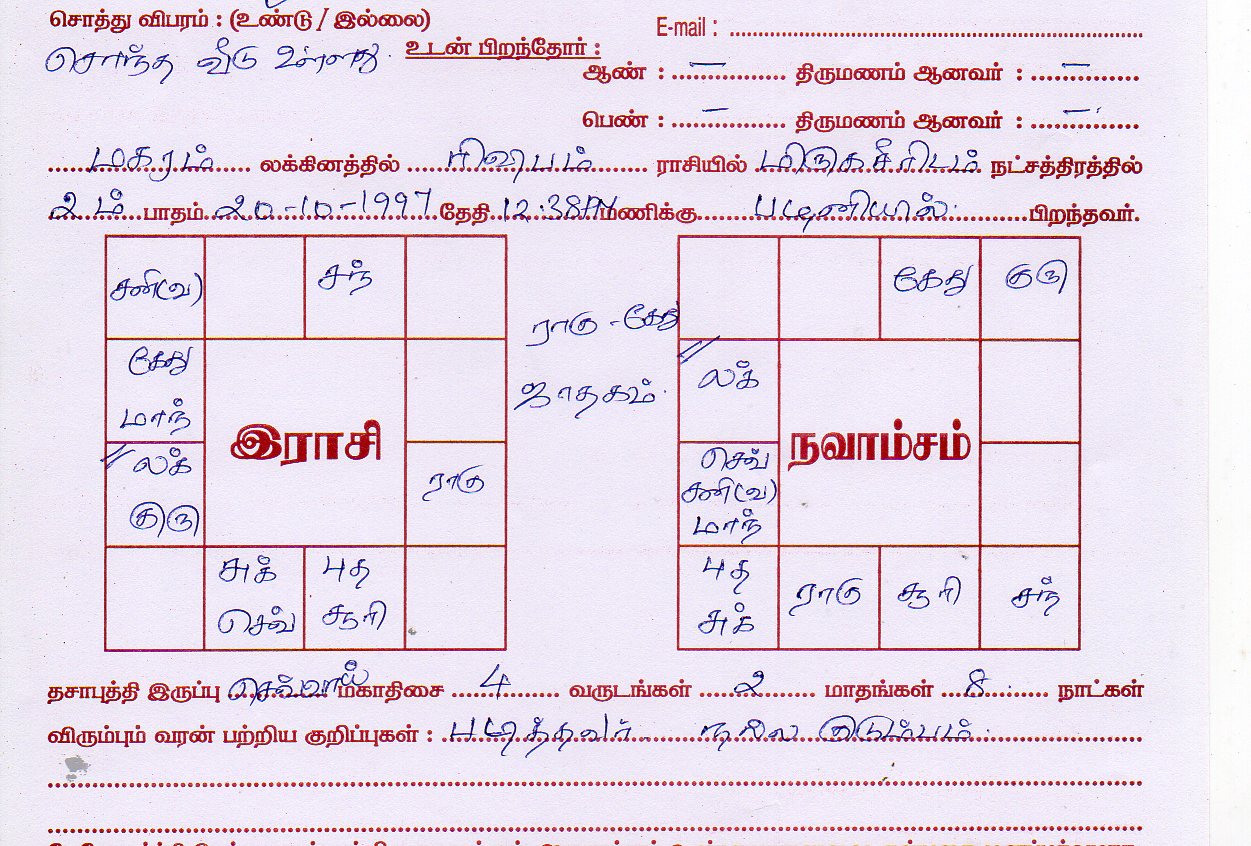 சொத்து விபரம் : (உண்டு / இல்லை) E-mail :
சொந்த வீடு உள்ளது. உடன் பிறந்தோர் :
ஆண் : — திருமணம் ஆனவர் : —
பெண் : — திருமணம் ஆனவர் : —
மகரம் லக்கினத்தில் ரிஷபம் ராசியில் மிருகசீரிடம் நட்சத்திரத்தில்
2ம் பாதம் 20-10-1997 தேதி 12.38PM மணிக்கு பழனியில் பிறந்தவர்.
சனி(வ) சந் கேது குரு
ராகு - கேது
கேது லக்
மாந் ஜாதகம்.
இராசி நவாம்சம்
லக் ராகு செவ்
குரு சனி(வ)
மாந்
சுக் புத புத ராகு சூரி சந்
செவ் சூரி சுக்
தசாபுத்தி இருப்பு செவ்வாய் மகாதிசை 4 வருடங்கள் 2 மாதங்கள் 8 நாட்கள்
விரும்பும் வரன் பற்றிய குறிப்புகள் : படித்தவர் நல்ல குடும்பம்.